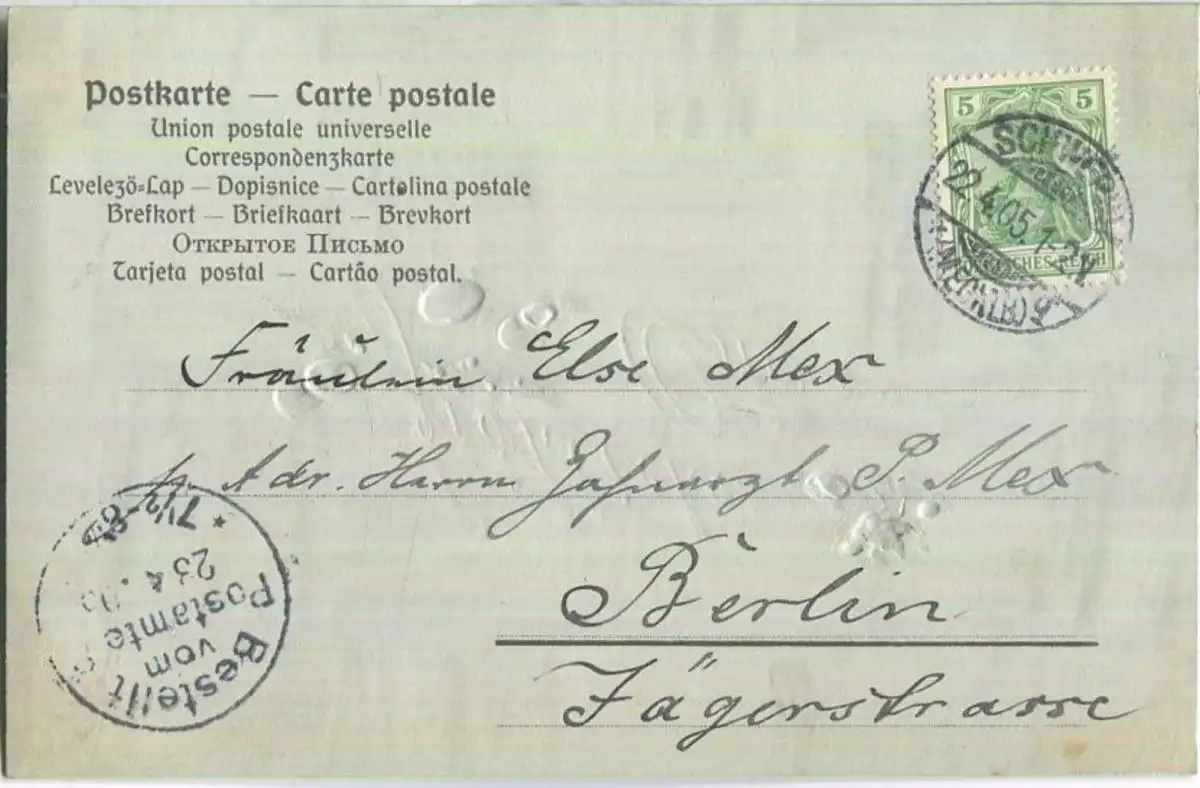 Postkarte — Carte postale
Union postale universelle
Correspondenzkarte
Levelező-Lap — Dopisnice — Cartolina postale
Brefkort — Briefkaart — Brevkort
Открытое Письмо
Tarjeta postal — Cartão postal.
5 5
SCHWERIN
22.4.05.1-2N.
(MECKLB)
DEUTSCHES REICH
Fräulein Else Mex
p. Adr. Herrn Zahnarzt P. Mex
Berlin
Jägerstrasse
Bestellt
vom
Postamte
23 4. 05
7½-8½